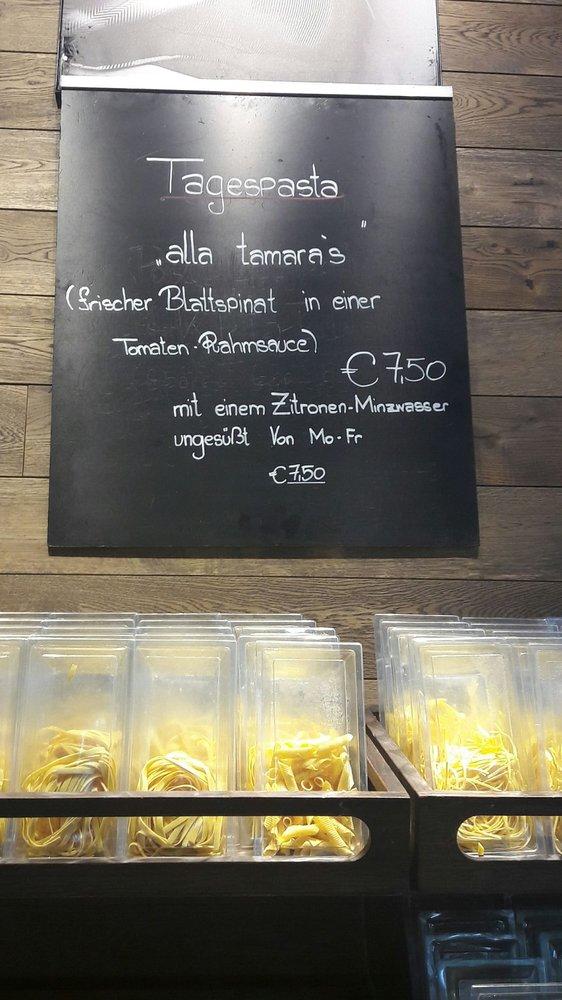 Tagespasta
„alla tamara's"
(frischer Blattspinat in einer
Tomaten-Rahmsauce)
€7,50
mit einem Zitronen-Minzwasser
ungesüßt Von Mo-Fr
€7,50